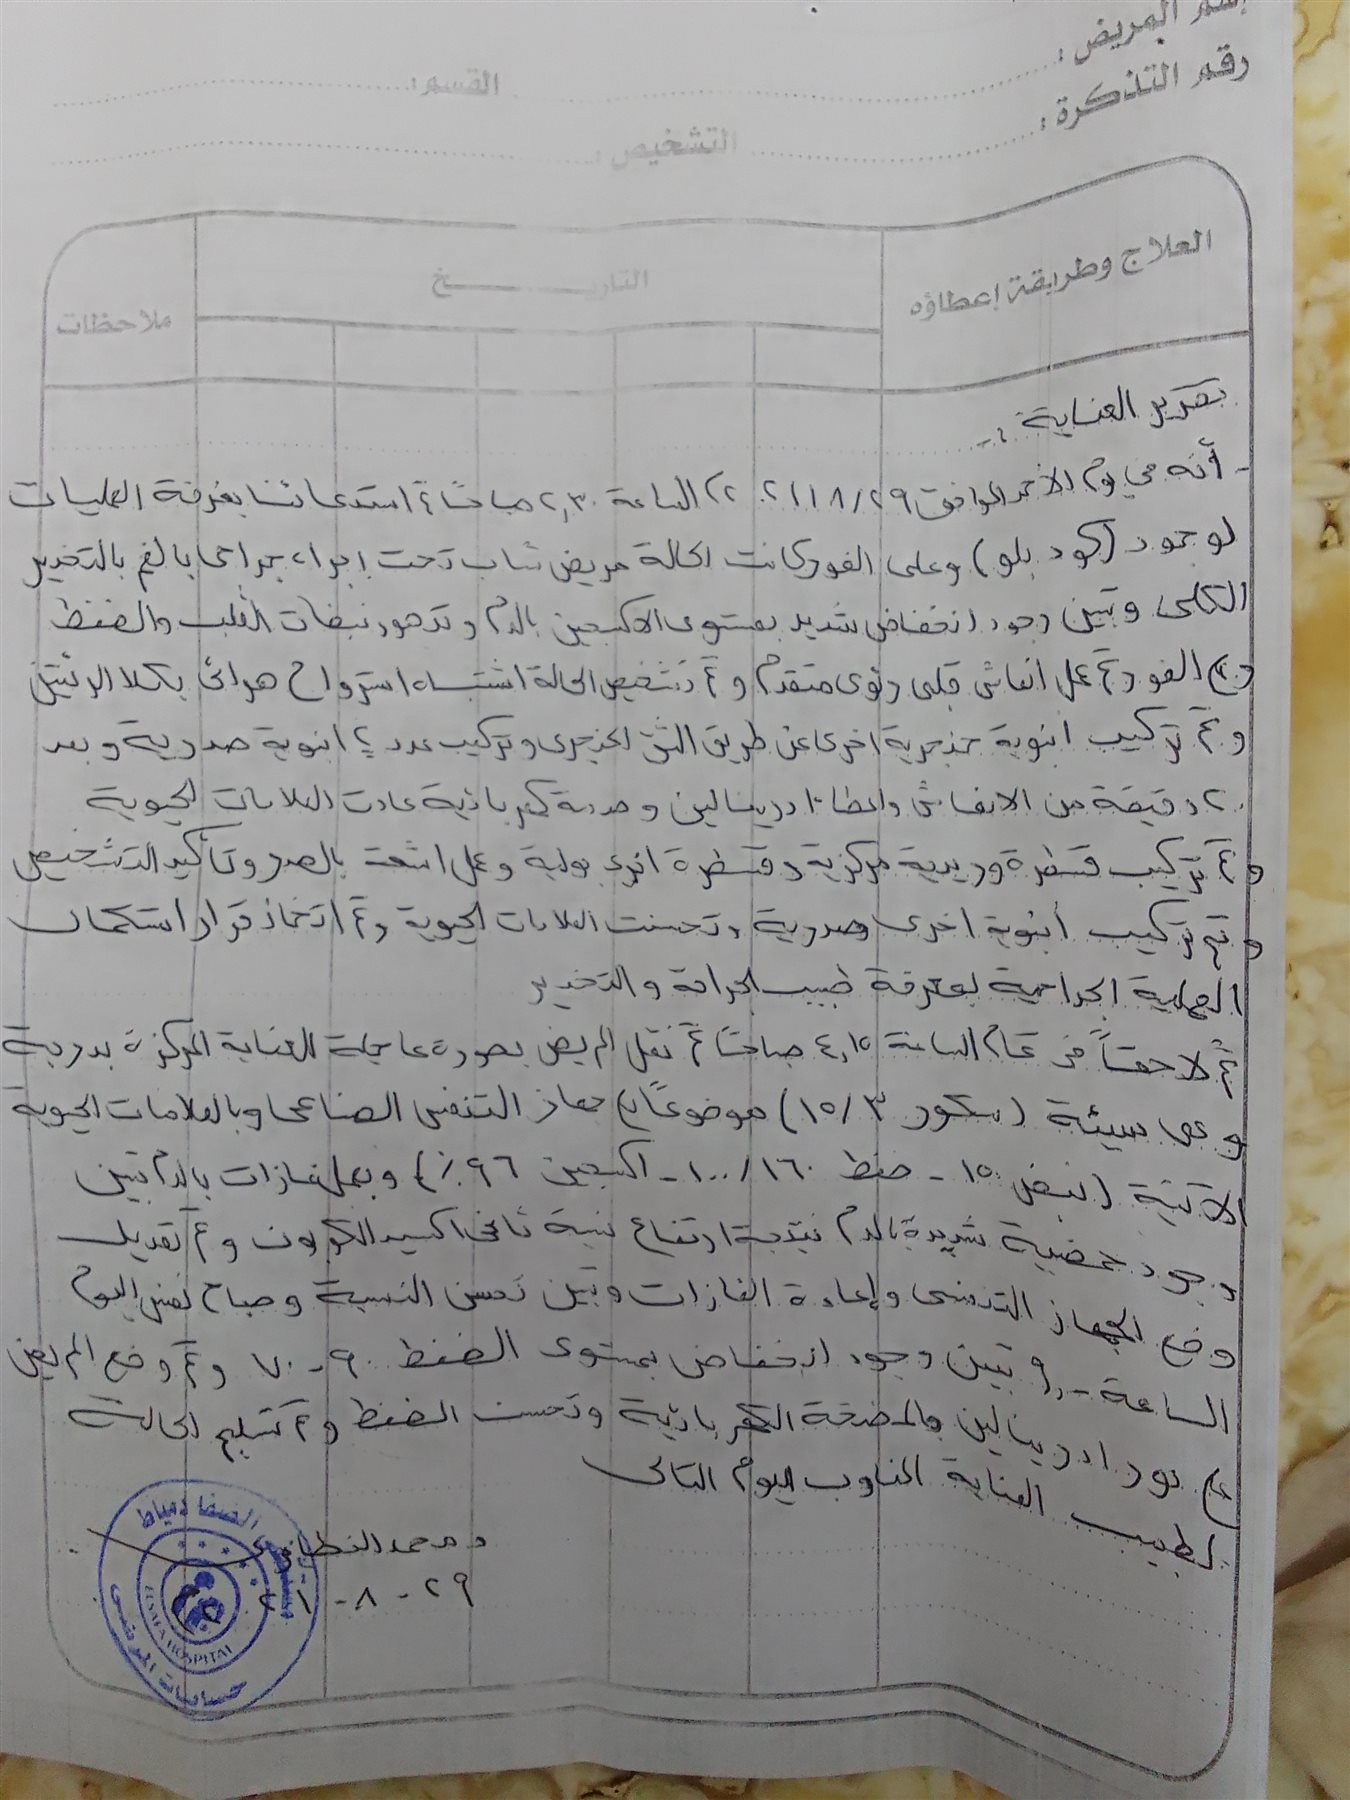 إسم المريض :
القسم :
رقم التذكرة :
التشخيص :
العلاج وطريقة إعطاؤه
التاريخ
ملاحظات
تقرير العناية :-
- أنه في يوم الأحد الموافق ٢٩/٨/٢٠٢١ الساعة ٢,٣٠ صباحًا تم استدعائنا بغرفة العمليات
لوجود (كود بلو) وعلى الفور كانت الحالة مريض شاب تحت إجراء جراحى بالفم بالتخدير
الكلى وتبين وجود انخفاض شديد بمستوى الاكسجين بالدم وتدهور نبضات القلب والضغط
وعلى الفور تم عمل انعاش قلبى رئوى متقدم وتم تشخيص الحالة اشتباه استرواح هوائى بكلا الرئتين
وتم تركيب انبوبة حنجرية اخرى عن طريق الشق الحنجرى وتركيب عدد ٢ انبوبة صدرية وبعد
٢٠ دقيقة من الانعاش واعطاء ادرينالين وصدمة كهربائية عادت العلامات الحيوية
وتم تركيب قسطرة وريدية مركزية وقسطرة اخرى بولية وعمل اشعة بالصدر وتأكيد التشخيص
وتم تركيب أنبوبة اخرى صدرية وتحسنت العلامات الحيوية وتم اتخاذ قرار استكمال
العملية الجراحية بمعرفة طبيب الجراحة والتخدير
ثم لاحقاً فى تمام الساعة ٤,١٥ صباحًا تم نقل المريض بصورة عاجلة للعناية المركزة بدرجة
وعى سيئة (سكور ٣/١٥) موضوعًا على جهاز التنفس الصناعى وبالعلامات الحيوية
الآتية (نبض ١٥٠ - ضغط ١٦٠/١٠٠ - اكسجين ٩٦٪) وبعمل غازات بالدم تبين
وجود حمضية شديدة بالدم نتيجة ارتفاع نسبة ثانى اكسيد الكربون وتم تعديل
وضع الجهاز التنفسى وإعادة الغازات وتبين تحسن النسبة وصباح نفس اليوم
الساعة ٩,٠٠ تبين وجود انخفاض بمستوى الضغط ٩٠-٧٠ وتم وضع المريض
على نور ادرينالين بالمضخة الكهربائية وتحسن الضغط وتم تسليم الحالة
لطبيب العناية المناوب اليوم التالى
د. محمد
٢٩-٨-٢٠٢١
مستشفى الصفا دمياط
ELSAFA HOSPITAL
حسابات المرضى